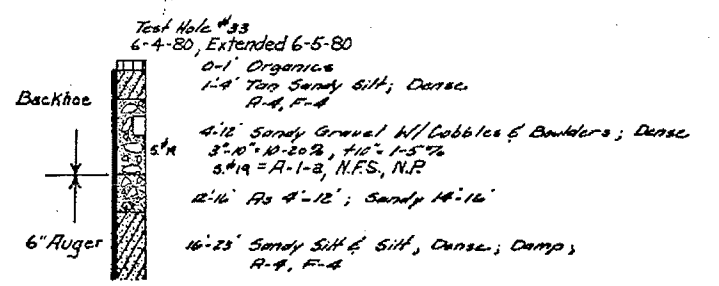 Test Hole #33
6-4-80, Extended 6-5-80
0-1' Organics
1'-4' Tan Sandy Silt; Dense
A-4, F-4
Backhoe
4'-12' Sandy Gravel W/Cobbles & Boulders; Dense
3"-10"=10-20%, +10"=1-5%
S.#19
S.#19 = A-1-a, N.F.S., N.P.
12'-16' As 4'-12'; Sandy 14'-16'
6" Auger
16'-23' Sandy Silt & Silt, Dense; Damp;
A-4, F-4